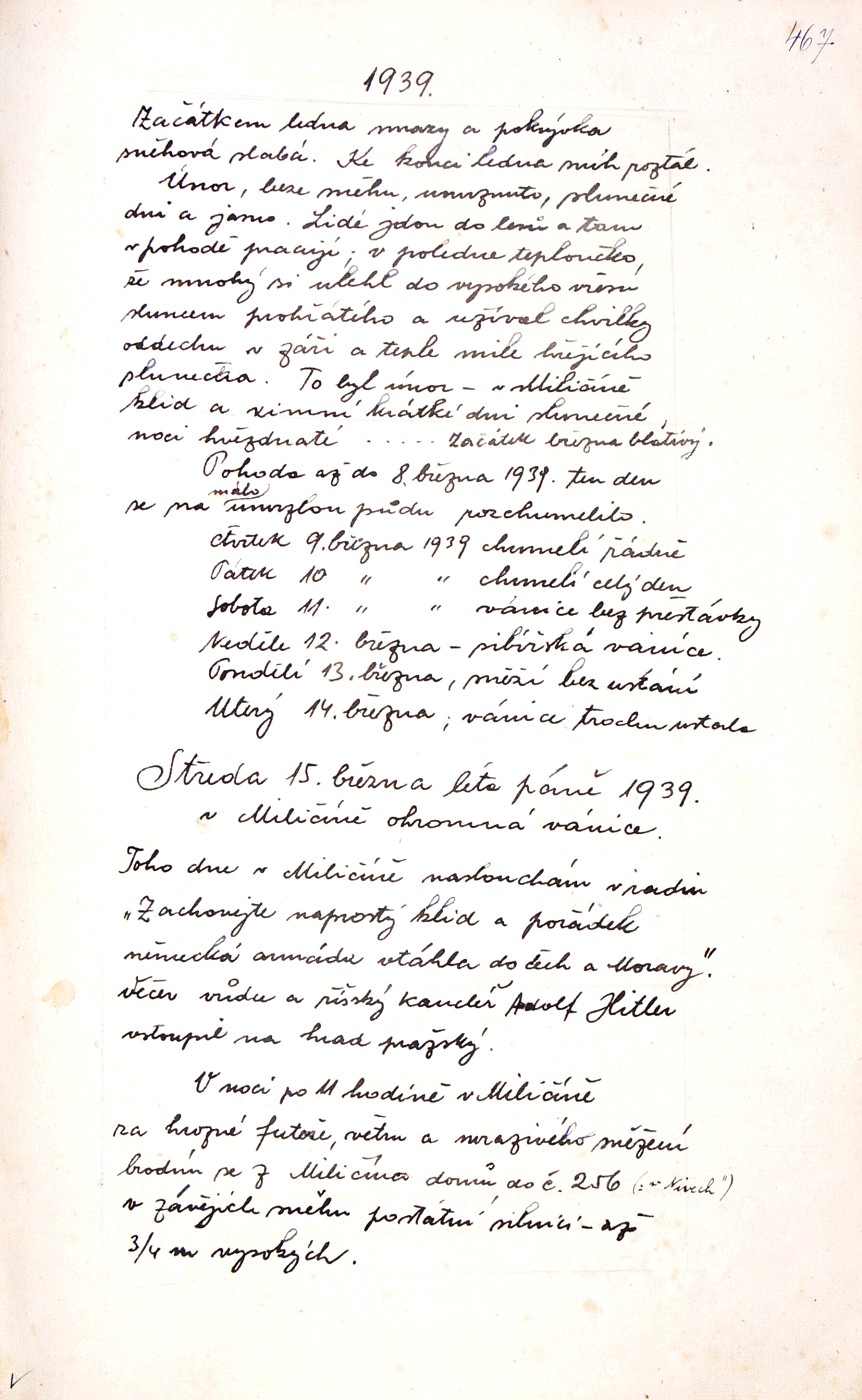 467
1939.
Začátkem ledna mrazy a pokrývka
sněhová slabá. Ke konci ledna sníh roztál.
Únor, beze sněhu, umrznuto, slunečné
dni a jasno. Lidé jdou do lesů a tam
v pohodě pracují; v poledne teploučko,
že mnohý si ulehl do vysokého vřesu
sluncem prohřátého a užíval chvilky
oddechu v září a teple mile hřejícího
slunečka. To byl únor – v Miličíně
klid a zimní krátké dni slunečné,
noci hvězdnaté ..... Začátek března blátivý.
Pohoda až do 8. března 1939. ten den
málo
se na umrzlou půdu rozchumelilo.
čtvrtek 9. března 1939 chumelí řádně
Pátek 10 " " chumelí celý den
Sobota 11. " " vánice bez přestávky
Neděle 12. března – sibiřská vánice.
Pondělí 13. března, sněží bez ustání
Úterý 14. března; vánice trochu ustala
Středa 15. března léta páně 1939.
v Miličíně ohromná vánice.
Toho dne v Miličíně naslouchám v radiu
„Zachovejte naprostý klid a pořádek
německá armáda vtáhla do Čech a Moravy".
večer vůdce a říšský kancléř Adolf Hitler
vstoupil na hrad pražský.
V noci po 11 hodině v Miličíně
za hrozné futeře, větru a mrazivého sněžení
brodím se z Miličína domů do č. 256 (: "v Nivech")
v závějích sněhu po státní silnici – až
3/4 m vysokých.